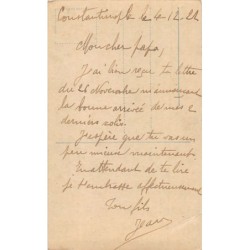 Constantinople le 4-12-22
Mon cher papa,
J'ai bien reçu ta lettre
du 26 Novembre m'annonçant
la bonne arrivé de mes 2
derniers colis.
J'espère que tu vas un
peu mieux maintenant.
En attendant de te lire
je t'embrasse affectueusement
Ton fils